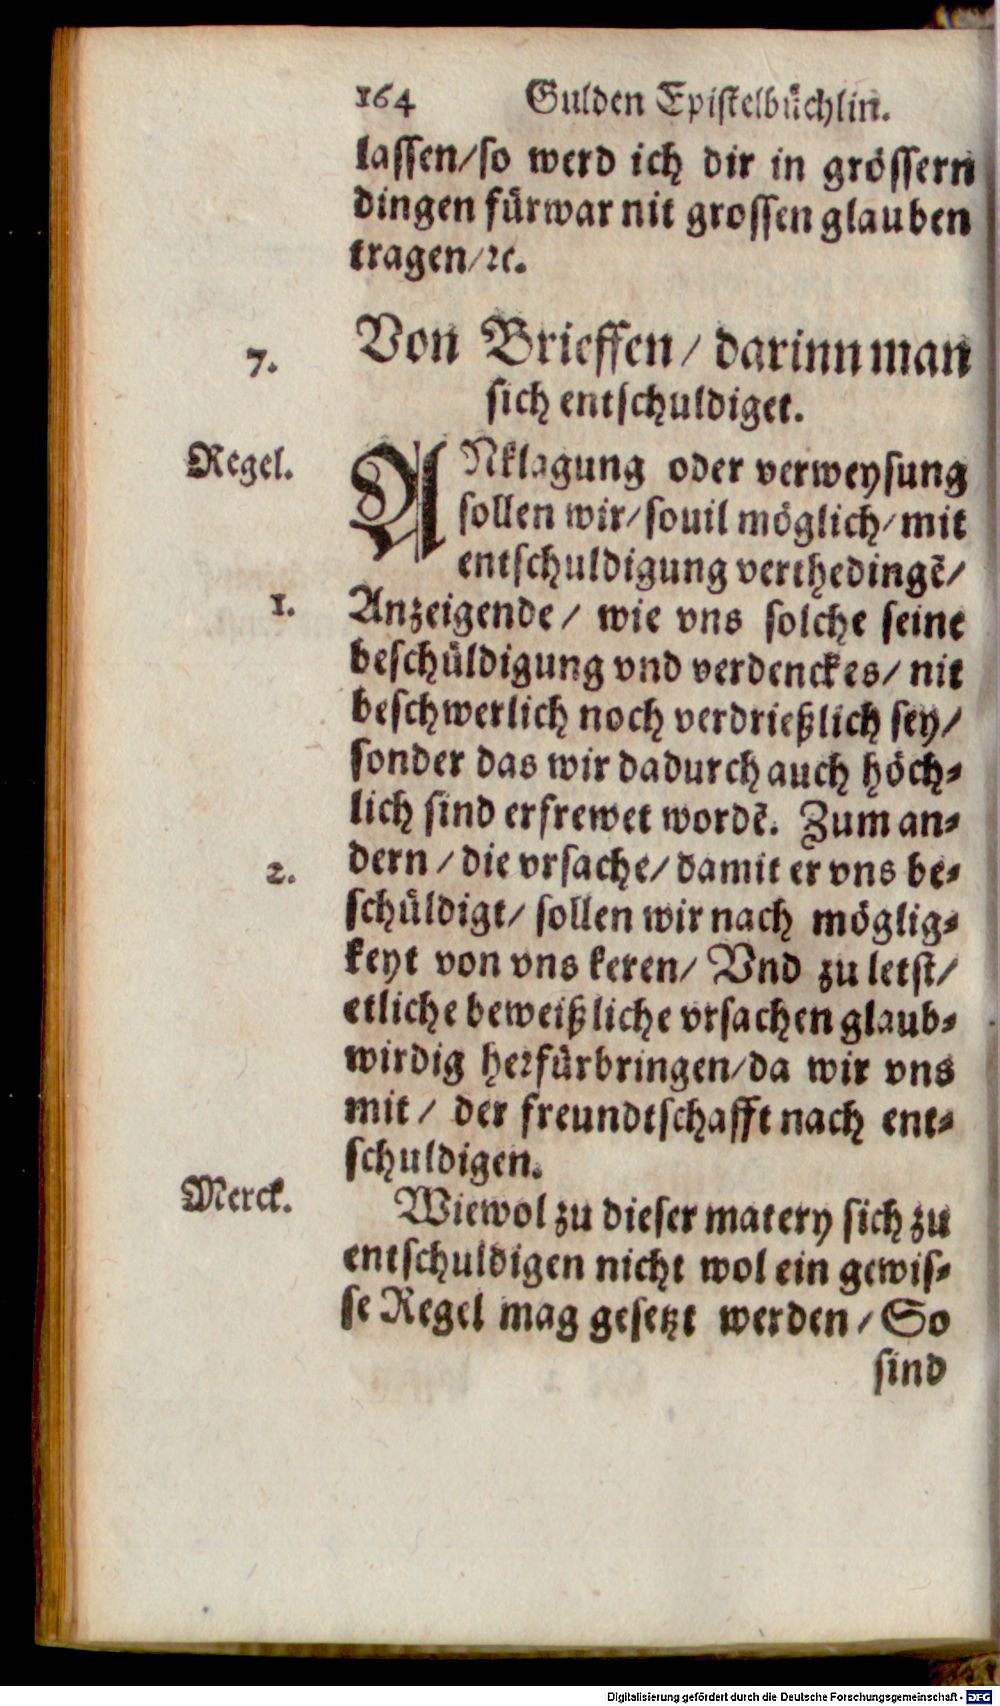 164 Gulden Epistelbuͤchlin.
lassen/so werd ich dir in groͤssern
dingen fuͤrwar nit grossen glauben
tragen/ꝛc.
7. Von Brieffen/ darinn man
sich entschuldiget.
Regel. ANklagung oder verweysung
sollen wir/souil moͤglich/mit
entschuldigung verthedingẽ/
1. Anzeigende/ wie vns solche seine
beschuͤldigung vnd verdenckes/ nit
beschwerlich noch verdrießlich sey/
sonder das wir dadurch auch hoͤch-
lich sind erfrewet wordẽ. Zum an-
2. dern/die vrsache/damit er vns be-
schuͤldigt/ sollen wir nach moͤglig-
keyt von vns keren/ Vnd zu letst/
etliche beweißliche vrsachen glaub-
wirdig herfuͤrbringen/da wir vns
mit/ der freundtschafft nach ent-
schuldigen.
Merck. Wiewol zu dieser matery sich zu
entschuldigen nicht wol ein gewis-
se Regel mag gesetzt werden/So
sind
Digitalisierung gefördert durch die Deutsche Forschungsgemeinschaft - DFG